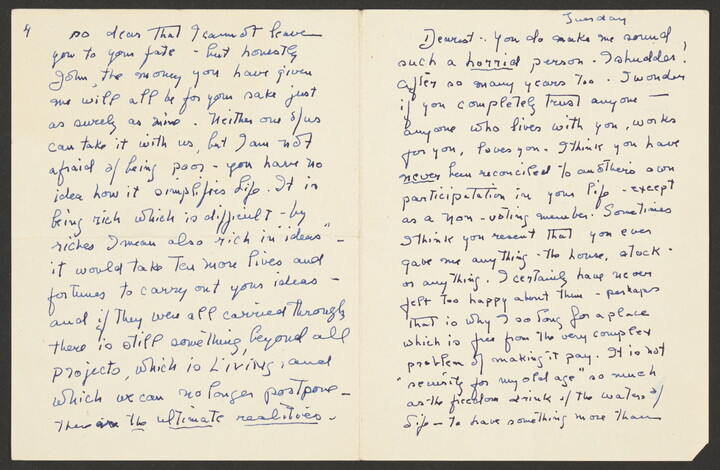 4
so dear that I cannot leave
you to your fate - but honestly
John, the money you have given
me will all be for your sake just
as surely as mine. Neither one of us
can take it with us, but I am not
afraid of being poor - you have no
idea how it simplifies life. It is
being rich which is difficult - by
riches I mean also rich in "ideas" -
it would take ten more lives and
fortunes to carry out your ideas -
and if they were all carried through
there is still something beyond all
projects, which is LIVING, and
which we can no longer postpone -
There are the ultimate realities.
Tuesday
Dearest - You do make me sound
such a horrid person. I shudder!
After so many years too. I wonder
if you completely trust anyone -
anyone who lives with you, works
for you, loves you. I think you have
never been reconciled to another's own
participation in your life - except
as a non-voting member. Sometimes
I think you resent that you ever
gave me anything - the house, stock -
or anything. I certainly have never
felt too happy about them - perhaps
that is why I so long for a place
which is free from the very complex
problem of making it pay. It is not
"security for my old age" so much
as the freedom drink of the waters of
life - to have something more than